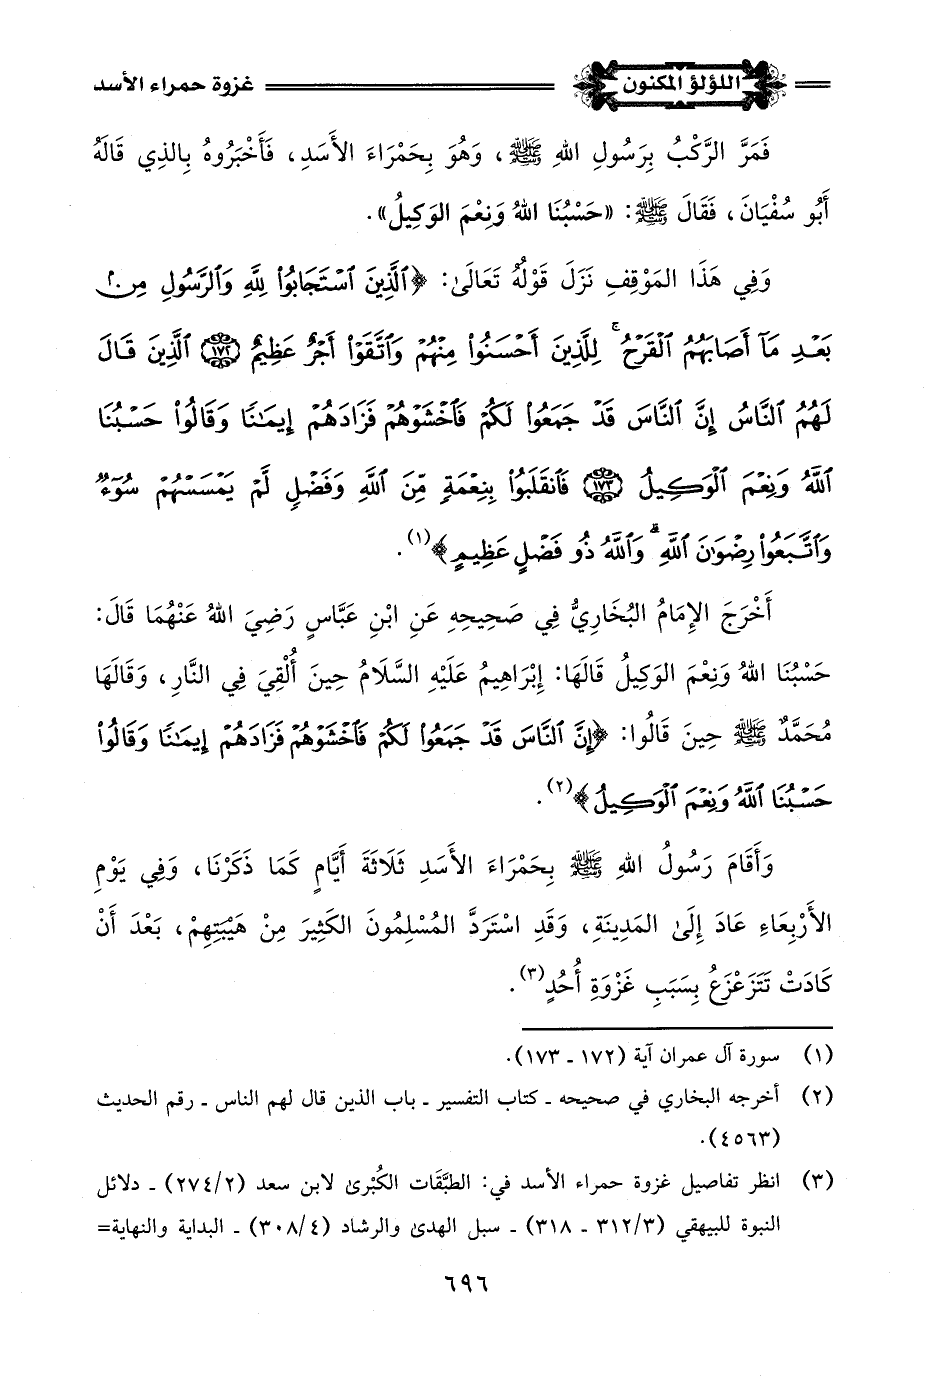 اللؤلؤ المكنون
غزوة حمراء الأسد
فَمَرَّ الرَّكْبُ بِرَسُولِ اللهِ ﷺ، وَهُوَ بِحَمْرَاءَ الأَسَدِ، فَأَخْبَرُوهُ بِالذِي قَالَهُ
أَبُو سُفْيَانَ، فَقَالَ ﷺ: «حَسْبُنَا اللهُ وَنِعْمَ الوَكِيلُ».
وَفِي هَذَا المَوْقِفِ نَزَلَ قَوْلُهُ تَعَالَىٰ: ﴿ٱلَّذِينَ ٱسْتَجَابُوا۟ لِلَّهِ وَٱلرَّسُولِ مِنۢ
بَعْدِ مَآ أَصَابَهُمُ ٱلْقَرْحُ ۚ لِلَّذِينَ أَحْسَنُوا۟ مِنْهُمْ وَٱتَّقَوْا۟ أَجْرٌ عَظِيمٌ ﴿١٧٢﴾ ٱلَّذِينَ قَالَ
لَهُمُ ٱلنَّاسُ إِنَّ ٱلنَّاسَ قَدْ جَمَعُوا۟ لَكُمْ فَٱخْشَوْهُمْ فَزَادَهُمْ إِيمَٰنًا وَقَالُوا۟ حَسْبُنَا
ٱللَّهُ وَنِعْمَ ٱلْوَكِيلُ ﴿١٧٣﴾ فَٱنقَلَبُوا۟ بِنِعْمَةٍ مِّنَ ٱللَّهِ وَفَضْلٍ لَّمْ يَمْسَسْهُمْ سُوٓءٌ
وَٱتَّبَعُوا۟ رِضْوَٰنَ ٱللَّهِ ۗ وَٱللَّهُ ذُو فَضْلٍ عَظِيمٍ﴾(١).
أَخْرَجَ الإِمَامُ البُخَارِيُّ فِي صَحِيحِهِ عَنِ ابْنِ عَبَّاسٍ رَضِيَ اللهُ عَنْهُمَا قَالَ:
حَسْبُنَا اللهُ وَنِعْمَ الوَكِيلُ قَالَهَا: إِبْرَاهِيمُ عَلَيْهِ السَّلَامُ حِينَ أُلْقِيَ فِي النَّارِ، وَقَالَهَا
مُحَمَّدٌ ﷺ حِينَ قَالُوا: ﴿إِنَّ ٱلنَّاسَ قَدْ جَمَعُوا۟ لَكُمْ فَٱخْشَوْهُمْ فَزَادَهُمْ إِيمَٰنًا وَقَالُوا۟
حَسْبُنَا ٱللَّهُ وَنِعْمَ ٱلْوَكِيلُ﴾(٢).
وَأَقَامَ رَسُولُ اللهِ ﷺ بِحَمْرَاءَ الأَسَدِ ثَلَاثَةَ أَيَّامٍ كَمَا ذَكَرْنَا، وَفِي يَوْمِ
الأَرْبِعَاءِ عَادَ إِلَىٰ المَدِينَةِ، وَقَدِ اسْتَرَدَّ المُسْلِمُونَ الكَثِيرَ مِنْ هَيْبَتِهِمْ، بَعْدَ أَنْ
كَادَتْ تَتَزَعْزَعُ بِسَبَبِ غَزْوَةِ أُحُدٍ(٣).
(١) سورة آل عمران آية (١٧٢ ـ ١٧٣).
(٢) أخرجه البخاري في صحيحه ـ كتاب التفسير ـ باب الذين قال لهم الناس ـ رقم الحديث
(٤٥٦٣).
(٣) انظر تفاصيل غزوة حمراء الأسد في: الطبَّقَات الكُبْرىٰ لابن سعد (٢/٢٧٤) ـ دلائل
النبوة للبيهقي (٣/٣١٢ ـ ٣١٨) ـ سبل الهدىٰ والرشاد (٤/٣٠٨) ـ البداية والنهاية=
٦٩٦